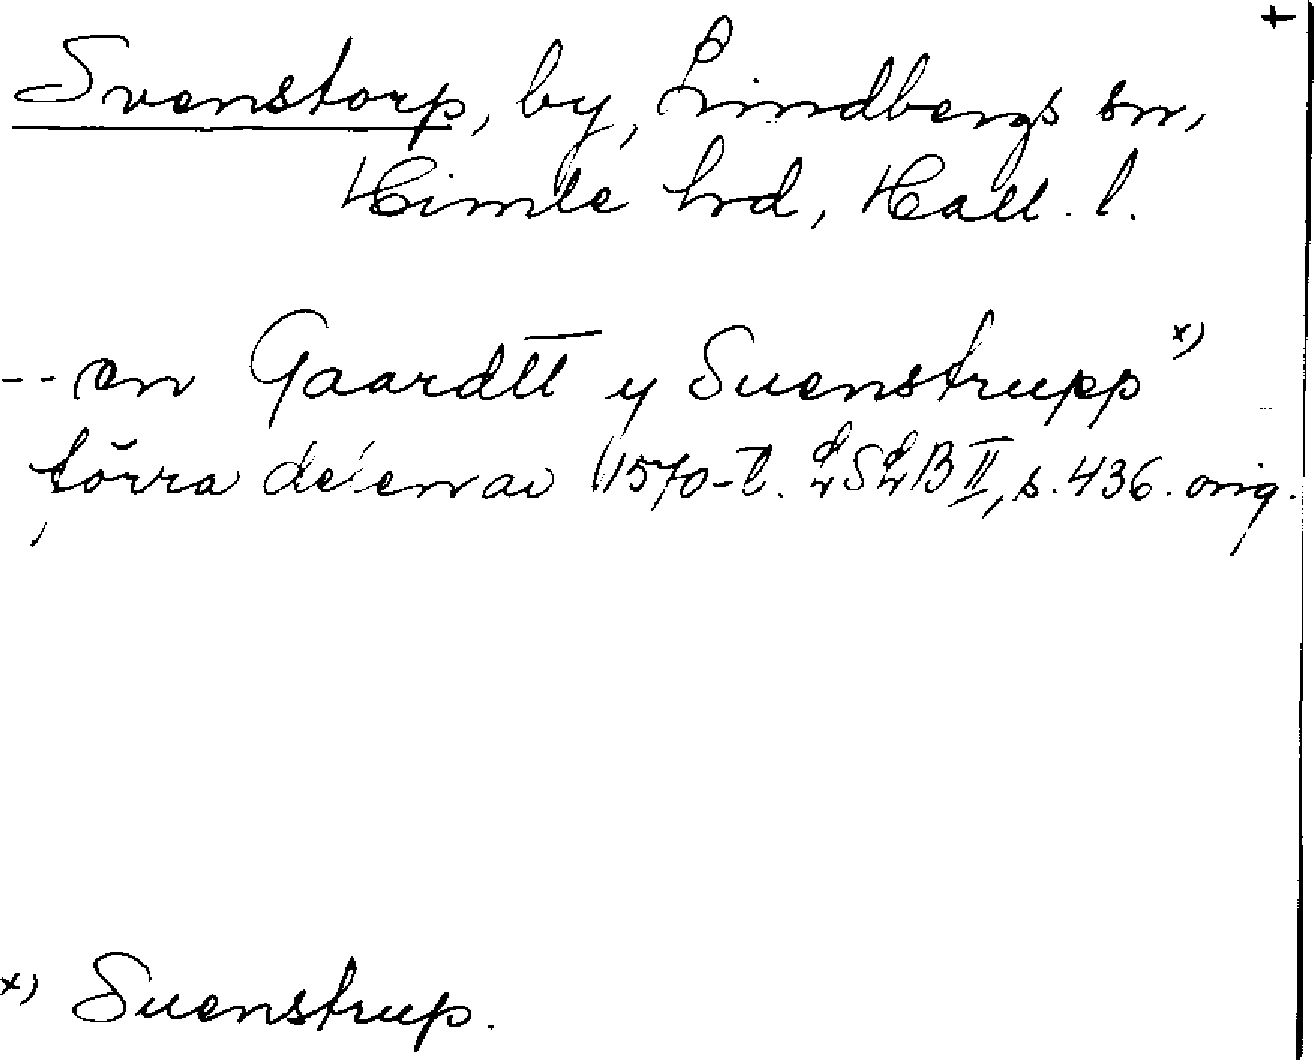 +
Svenstorp, by, Lindbergs sn,
Himle hrd, Hall. l.
-- en Gaardtt y Suenstrupp x)
förra delen av 1570-t. LSLB II, s. 436. orig.
x) Suenstrup.